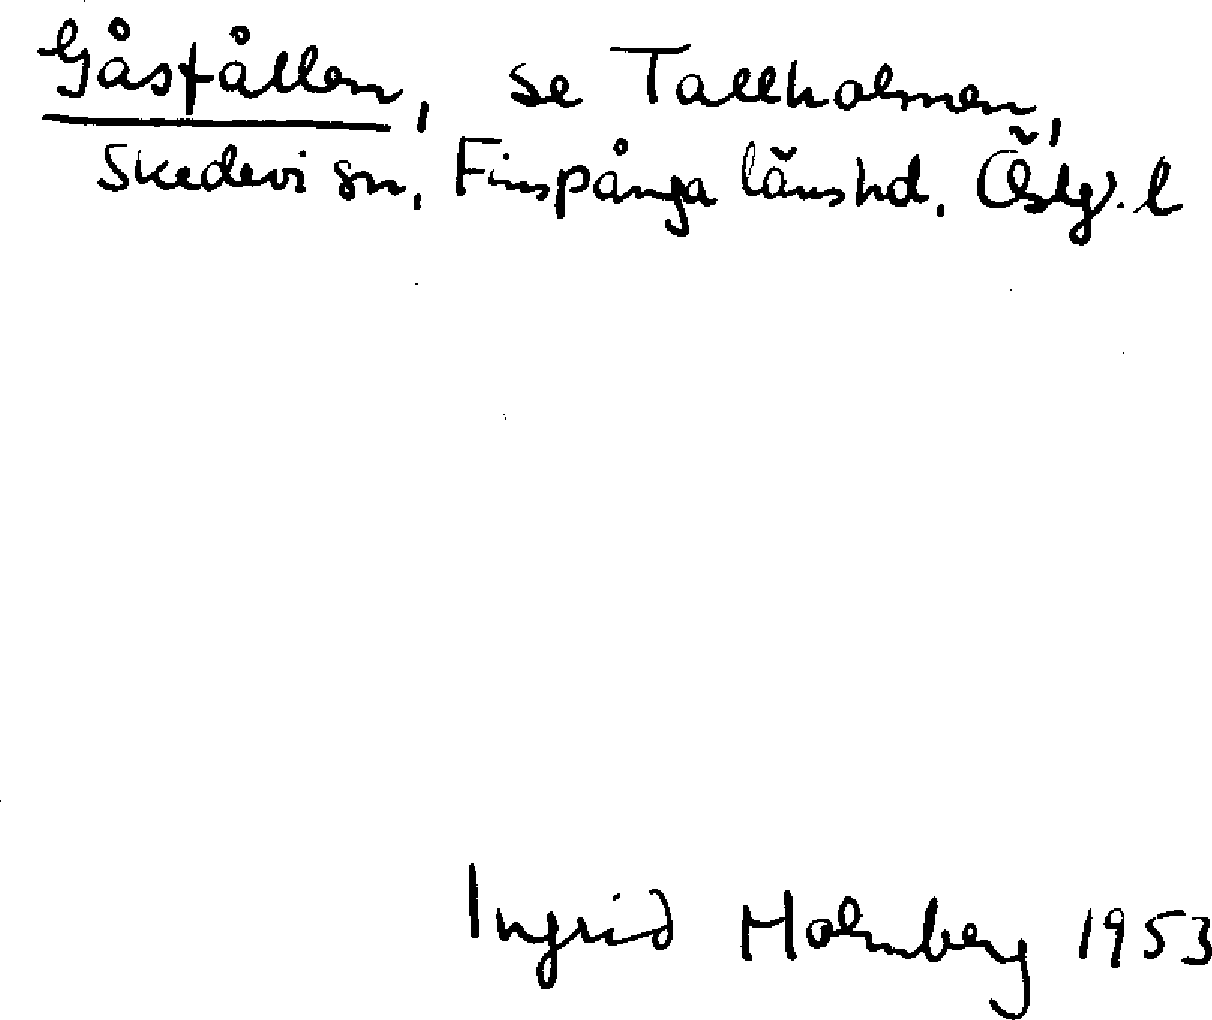 Gåsfållen, se Tallholmen,
Skedevi sn, Finspånga länshd. Östg. l
Ingrid Holmberg 1953